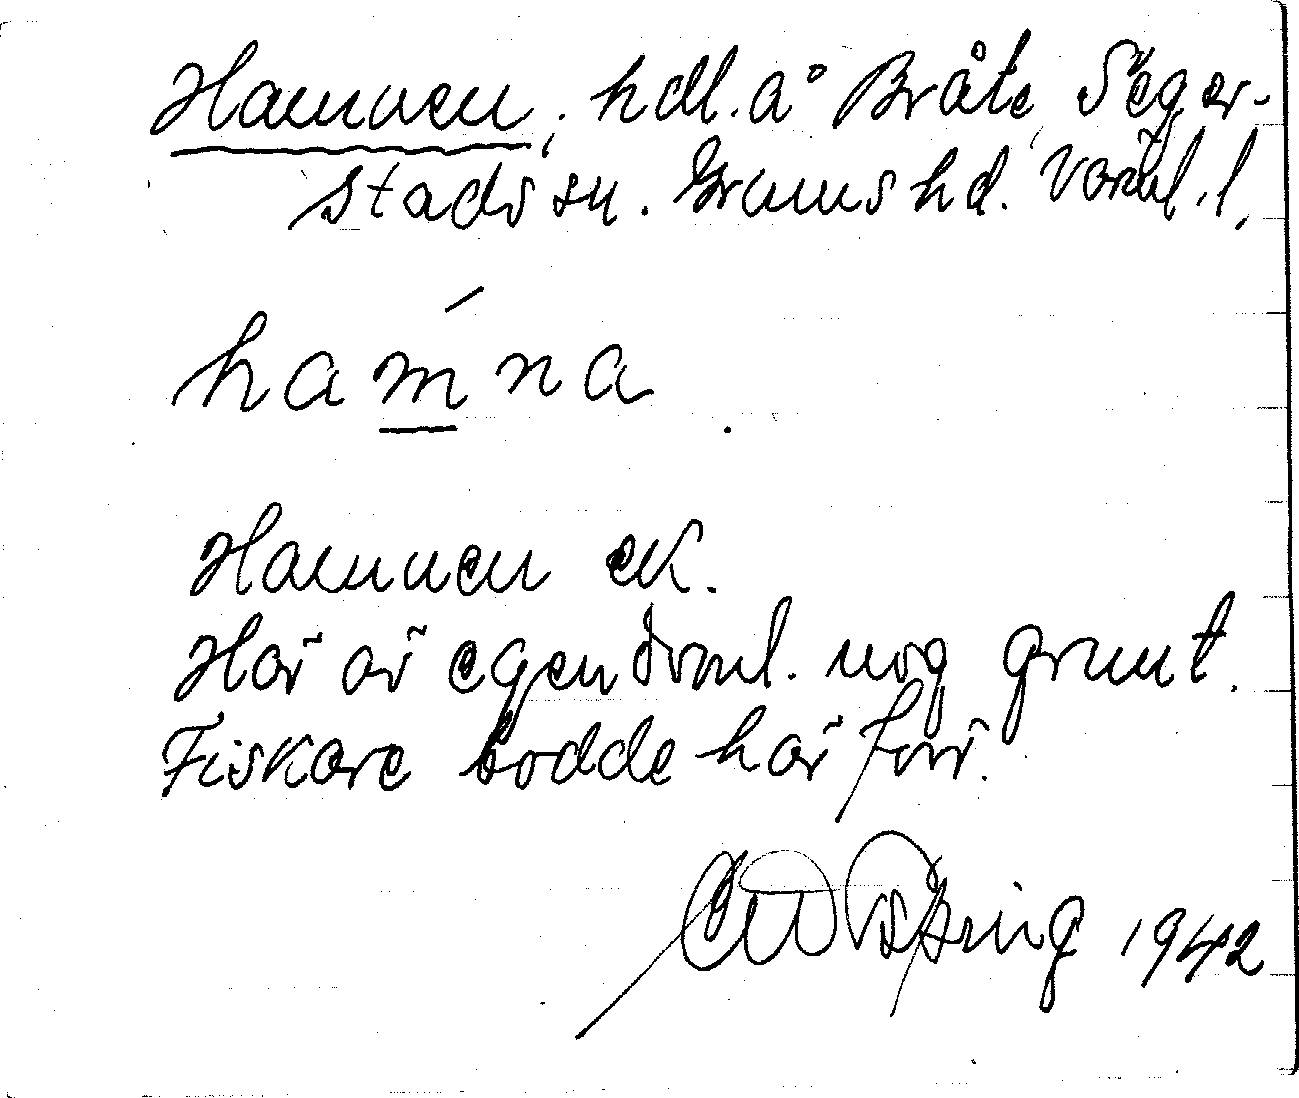 Hamnen, hdl. å Bråte, Seger-
stads sn. Grums hd. Värml. l.
hamna
Hamnen ek.
Här är egendoml. nog grunt.
Fiskare bodde här förr.
1942